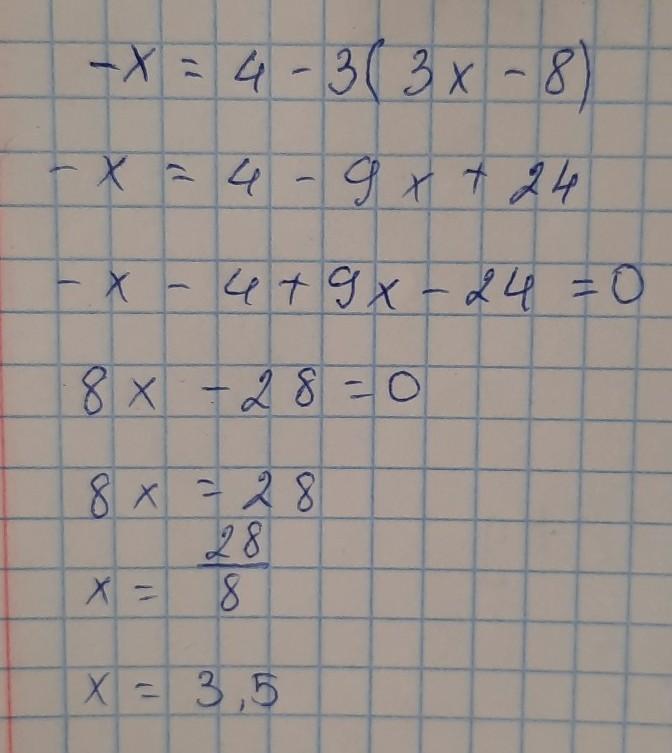 -x = 4 - 3(3x - 8)
-x = 4 - 9x + 24
-x - 4 + 9x - 24 = 0
8x - 28 = 0
8x = 28
x = 28/8
x = 3,5